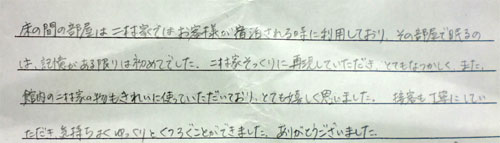 床の間の部屋は二村家ではお客様が宿泊される時に利用しており、その部屋で眠るの
は、記憶がある限りは初めてでした。二村家そっくりに再現していただき、とてもなつかしく、また、
館内の二村家の物もきれいに使っていただいており、とても嬉しく思いました。接客も丁寧にしてい
ただき気持ちよくゆっくりとくつろぐことができました。ありがとうございました。